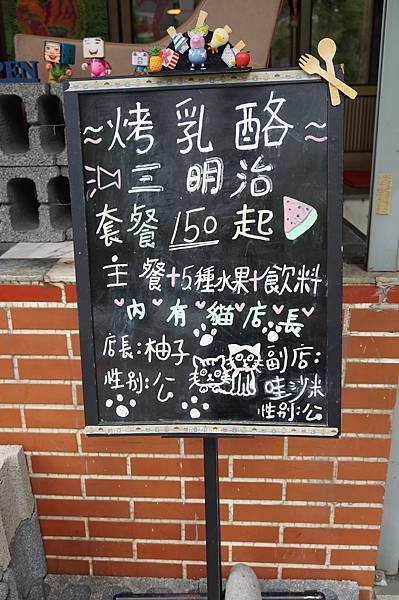 PEN
≈烤乳酪≈
三明治
套餐150起
主餐+5種水果+飲料
內有貓店長
店長:柚子
性別:公
副店:
哇沙米
性別:公